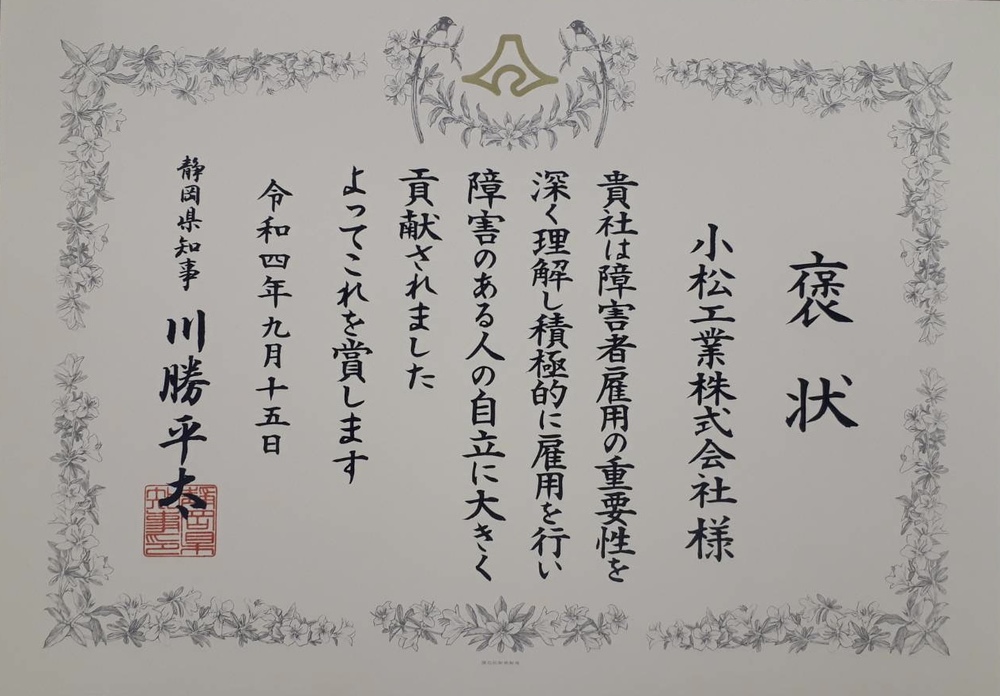 褒状
小松工業株式会社様
貴社は障害者雇用の重要性を
深く理解し積極的に雇用を行い
障害のある人の自立に大きく
貢献されました
よってこれを賞します
令和四年九月十五日
静岡県知事 川勝平太